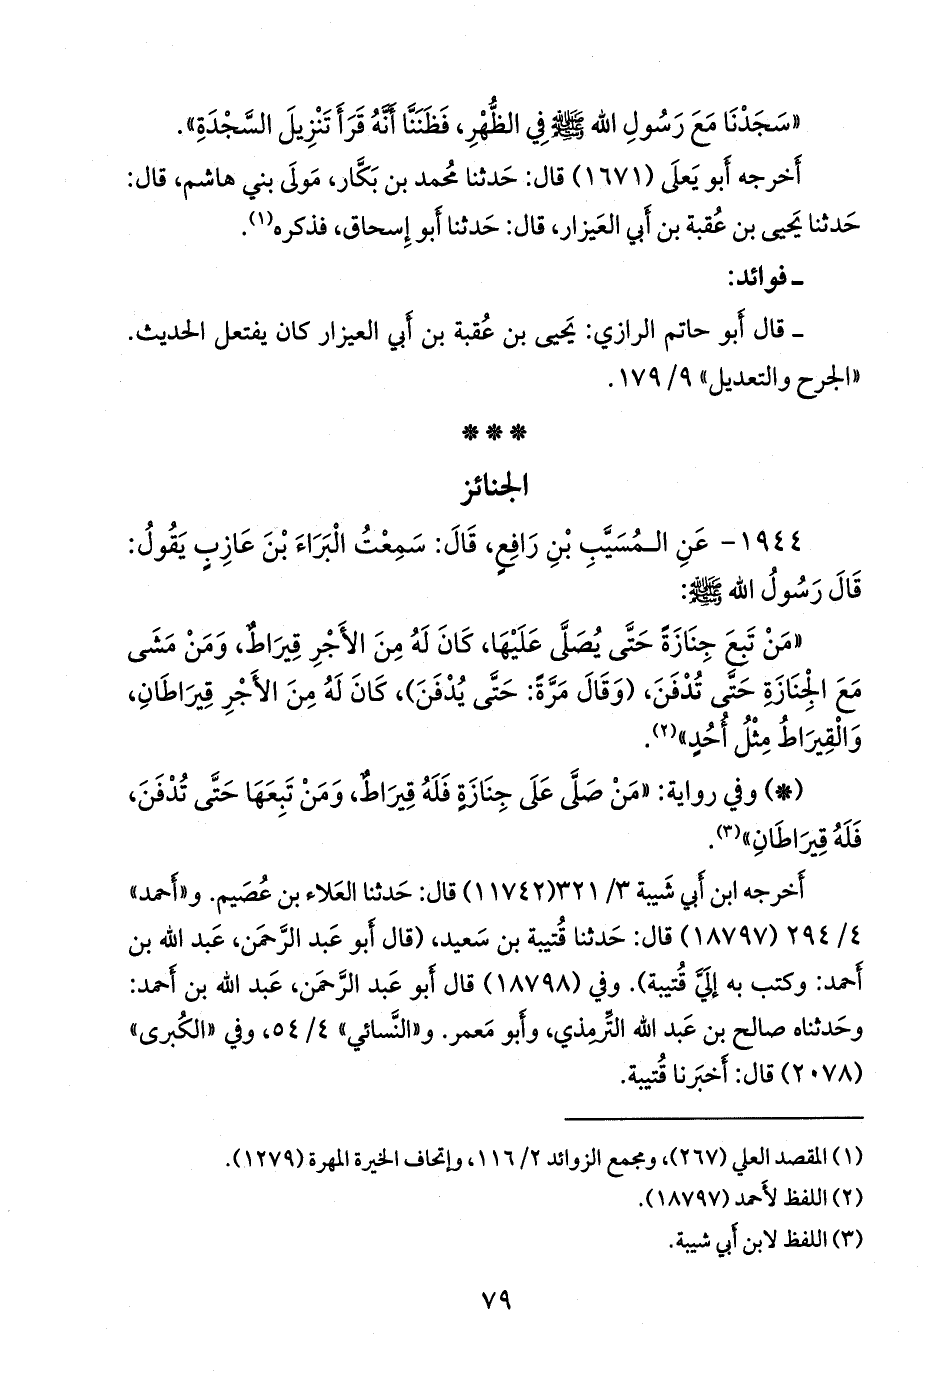 «سَجَدْنَا مَعَ رَسُولِ الله ﷺ فِي الظُّهْرِ، فَظَنَنَّا أَنَّهُ قَرَأَ تَنْزِيلَ السَّجْدَةِ».
أَخرجه أَبو يَعلَى (١٦٧١) قال: حَدثنا محُمد بن بَكَّار، مَولَى بني هاشم، قال:
حَدثنا يَحيى بن عُقبة بن أَبي العَيزار، قال: حَدثنا أَبو إِسحاق، فذكره(١).
ـ فوائد:
ـ قال أَبو حاتم الرازي: يَحيى بن عُقبة بن أَبي العيزار كان يفتعل الحديث.
«الجرح والتعديل» ٩/ ١٧٩.
***
الجنائز
١٩٤٤- عَنِ الـمُسَيَّبِ بْنِ رَافِعٍ، قَالَ: سَمِعْتُ الْبَرَاءَ بْنَ عَازِبٍ يَقُولُ:
قَالَ رَسُولُ الله ﷺ:
«مَنْ تَبِعَ جِنَازَةً حَتَّى يُصَلَّى عَلَيْهَا، كَانَ لَهُ مِنَ الأَجْرِ قِيرَاطٌ، وَمَنْ مَشَى
مَعَ الْجِنَازَةِ حَتَّى تُدْفَنَ، (وَقَالَ مَرَّةً: حَتَّى يُدْفَنَ)، كَانَ لَهُ مِنَ الأَجْرِ قِيرَاطَانِ،
وَالْقِيرَاطُ مِثْلُ أُحُدٍ»(٢).
(*) وفي رواية: «مَنْ صَلَّى عَلَى جِنَازَةٍ فَلَهُ قِيرَاطٌ، وَمَنْ تَبِعَهَا حَتَّى تُدْفَنَ،
فَلَهُ قِيرَاطَانِ»(٣).
أَخرجه ابن أَبي شَيبة ٣/ ٣٢١(١١٧٤٢) قال: حَدثنا العَلاء بن عُصَيم. و«أَحمد»
٤/ ٢٩٤ (١٨٧٩٧) قال: حَدثنا قُتيبة بن سَعيد، (قال أَبو عَبد الرَّحمَن، عَبد الله بن
أَحمد: وكتب به إِلَيَّ قُتيبة). وفي (١٨٧٩٨) قال أَبو عَبد الرَّحمَن، عَبد الله بن أَحمد:
وحَدثناه صالح بن عَبد الله التِّرمِذي، وأَبو مَعمر. و«النَّسائي» ٤/ ٥٤، وفي «الكُبرى»
(٢٠٧٨) قال: أَخبَرنا قُتيبة.
(١) المقصد العلي (٢٦٧)، ومجمع الزوائد ٢/ ١١٦، وإتحاف الخيرة المهرة (١٢٧٩).
(٢) اللفظ لأَحمد (١٨٧٩٧).
(٣) اللفظ لابن أَبي شيبة.
٧٩